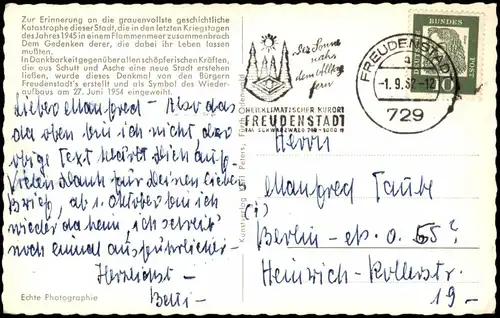 Zur Erinnerung an die grauenvollste geschichtliche
Katastrophe dieser Stadt, die in den letzten Kriegstagen
des Jahres 1945 in einem Flammenmeer zusammenbrach
Dem Gedenken derer, die dabei ihr Leben lassen
mußten.
In Dankbarkeit gegenüber allen schöpferischen Kräften,
die aus Schutt und Asche eine neue Stadt erstehen
ließen, wurde dieses Denkmal von den Bürgern
Freudenstadt's erstellt und als Symbol des Wieder-
aufbaus am 27. Juni 1954 eingeweiht.
Lieber Manfred - Also das
da oben bin ich nicht, der
obige Text klärt Dich auf.
Vielen Dank für Deinen lieben
Brief, ab 1. Oktober bin ich
wieder daheim, ich schreib'
noch einmal ausführlicher -
Herzlichst -
Echte Photographie
Kunstverlag
Peters,
der Sonne
nah
dem Alltag
fern
HEILKLIMATISCHER KURORT
FREUDENSTADT
IM SCHWARZWALD 740-1000 m
FREUDENSTADT
a
729
DEUTSCHE
BUNDES
POST
10
Herrn
Manfred Taube
(1) Berlin-
Heinrich-
19-